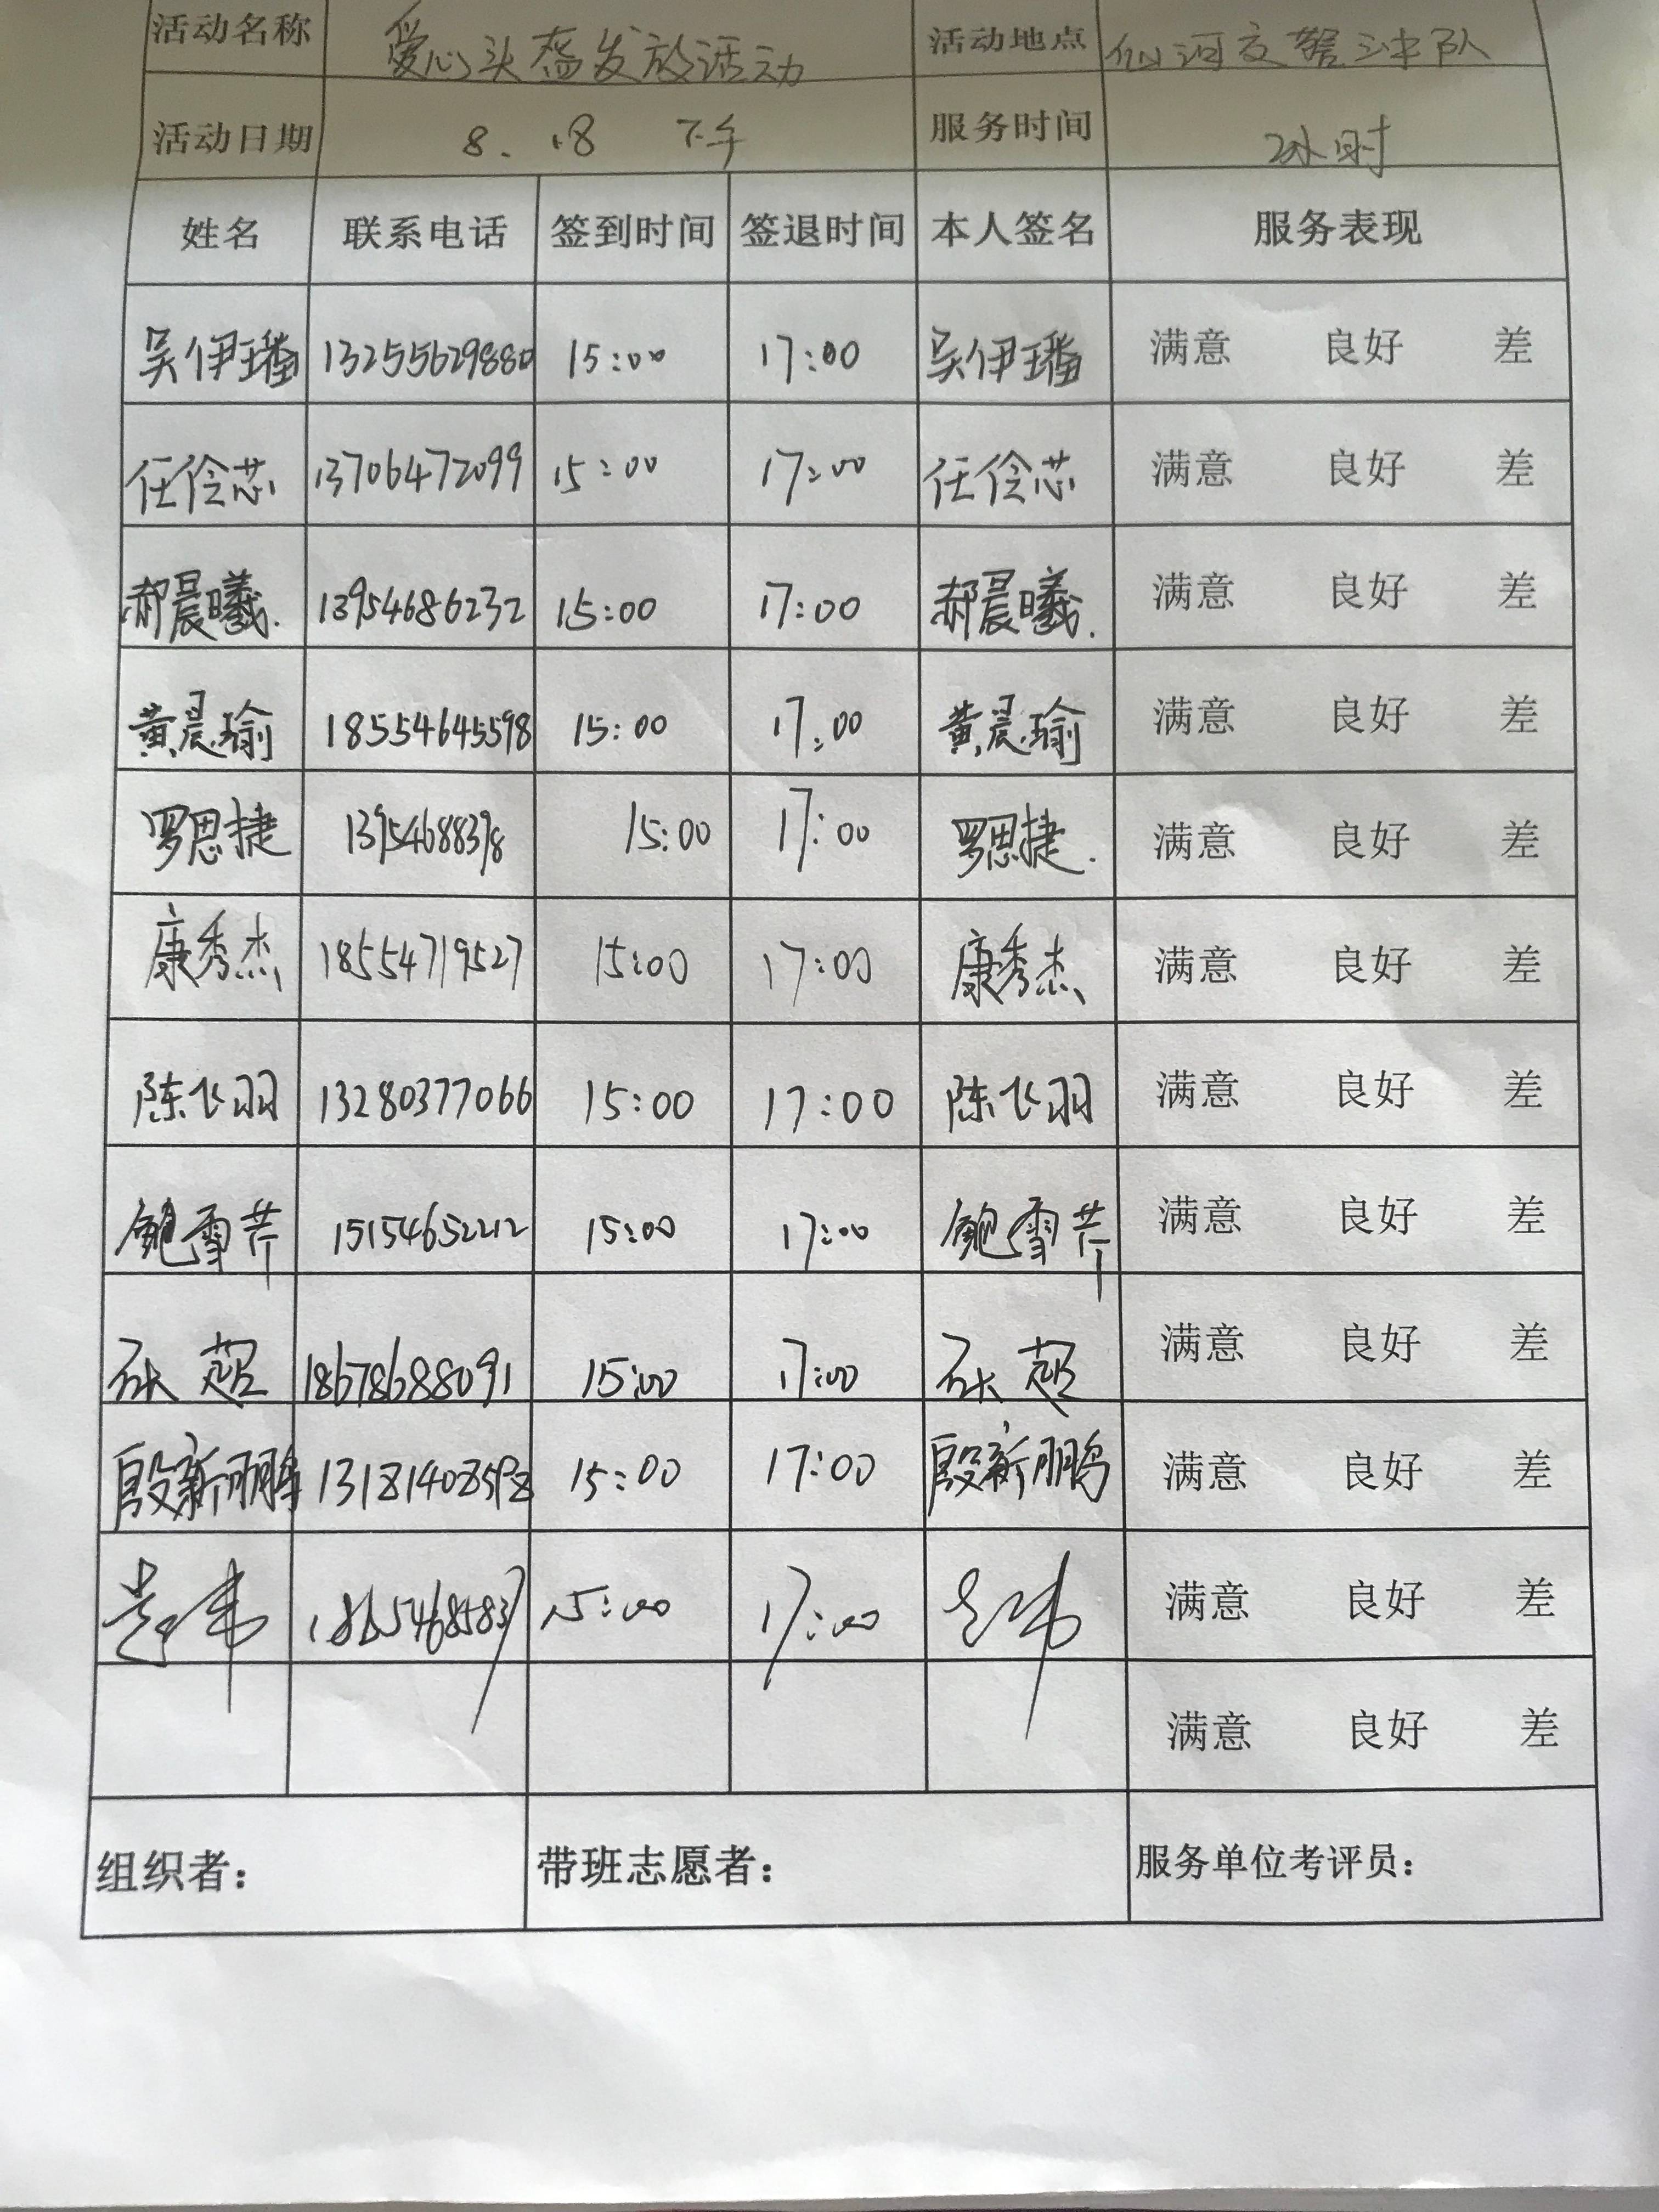 活动名称 爱心头盔发放活动 活动地点 仙河交警三中队
活动日期 8.18 下午 服务时间 2小时
姓名 联系电话 签到时间 签退时间 本人签名 服务表现
吴伊璠 13255629880 15:00 17:00 吴伊璠 满意 良好 差
任伶芯 13706472099 15:00 17:00 任伶芯 满意 良好 差
郝晨曦. 13954686232 15:00 17:00 郝晨曦. 满意 良好 差
黄晨瑜 18554645598 15:00 17:00 黄晨瑜 满意 良好 差
罗思捷 13954688398 15:00 17:00 罗思捷. 满意 良好 差
康秀杰 18554719527 15:00 17:00 康秀杰 满意 良好 差
陈飞羽 13280377066 15:00 17:00 陈飞羽 满意 良好 差
鲍雪芹 15154652212 15:00 17:00 鲍雪芹 满意 良好 差
超 18678688091 15:00 17:00 超 满意 良好 差
殷新鹏 15:00 17:00 殷新鹏 满意 良好 差
15:00 17:00 满意 良好 差
满意 良好 差
组织者： 带班志愿者： 服务单位考评员：